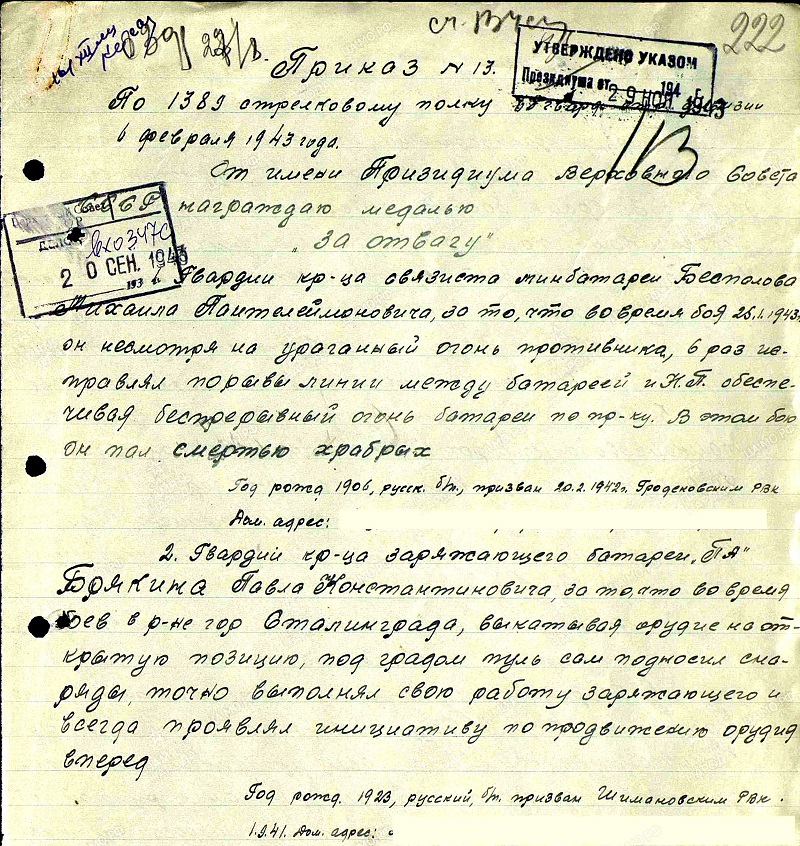 222
УТВЕРЖДЕНО УКАЗОМ
Президиума от 194 г.
29 НОЯ 1943
Приказ N 13.
По 1389 стрелковому полку дивизии
6 февраля 1943 года.
От имени Призидиума Верховного Совета
СССР награждаю медалью
„За отвагу"
20 СЕН. 1943
193 г.
1. Гвардии кр-ца связиста минбатареи Беспалова
Михаила Пантелеймоновича, за то, что во время боя 25.1.1943г.
он несмотря на ураганный огонь противника, 6 раз ис-
правлял порывы линии между батареей и Н.П. обеспе-
чивая беспрерывный огонь батареи по пр-ку. В этом бою
он пал смертью храбрых
Год рожд 1906, русск. б/п, призван 20.2.1942г. Гродековским РВК
Дом. адрес:
2. Гвардии кр-ца заряжающего батареи „ПА"
Бояркина Павла Константиновича, за то, что во время
боев в р-не гор Сталинграда, выкатывая орудие на от-
крытую позицию, под градом пуль сам подносил сна-
ряды, точно выполнял свою работу заряжающего и
всегда проявлял инициативу по продвижению орудия
вперед
Год рожд. 1923, русский, б/п. призван Шимановским РВК.
1.9.41. Дом. адрес: